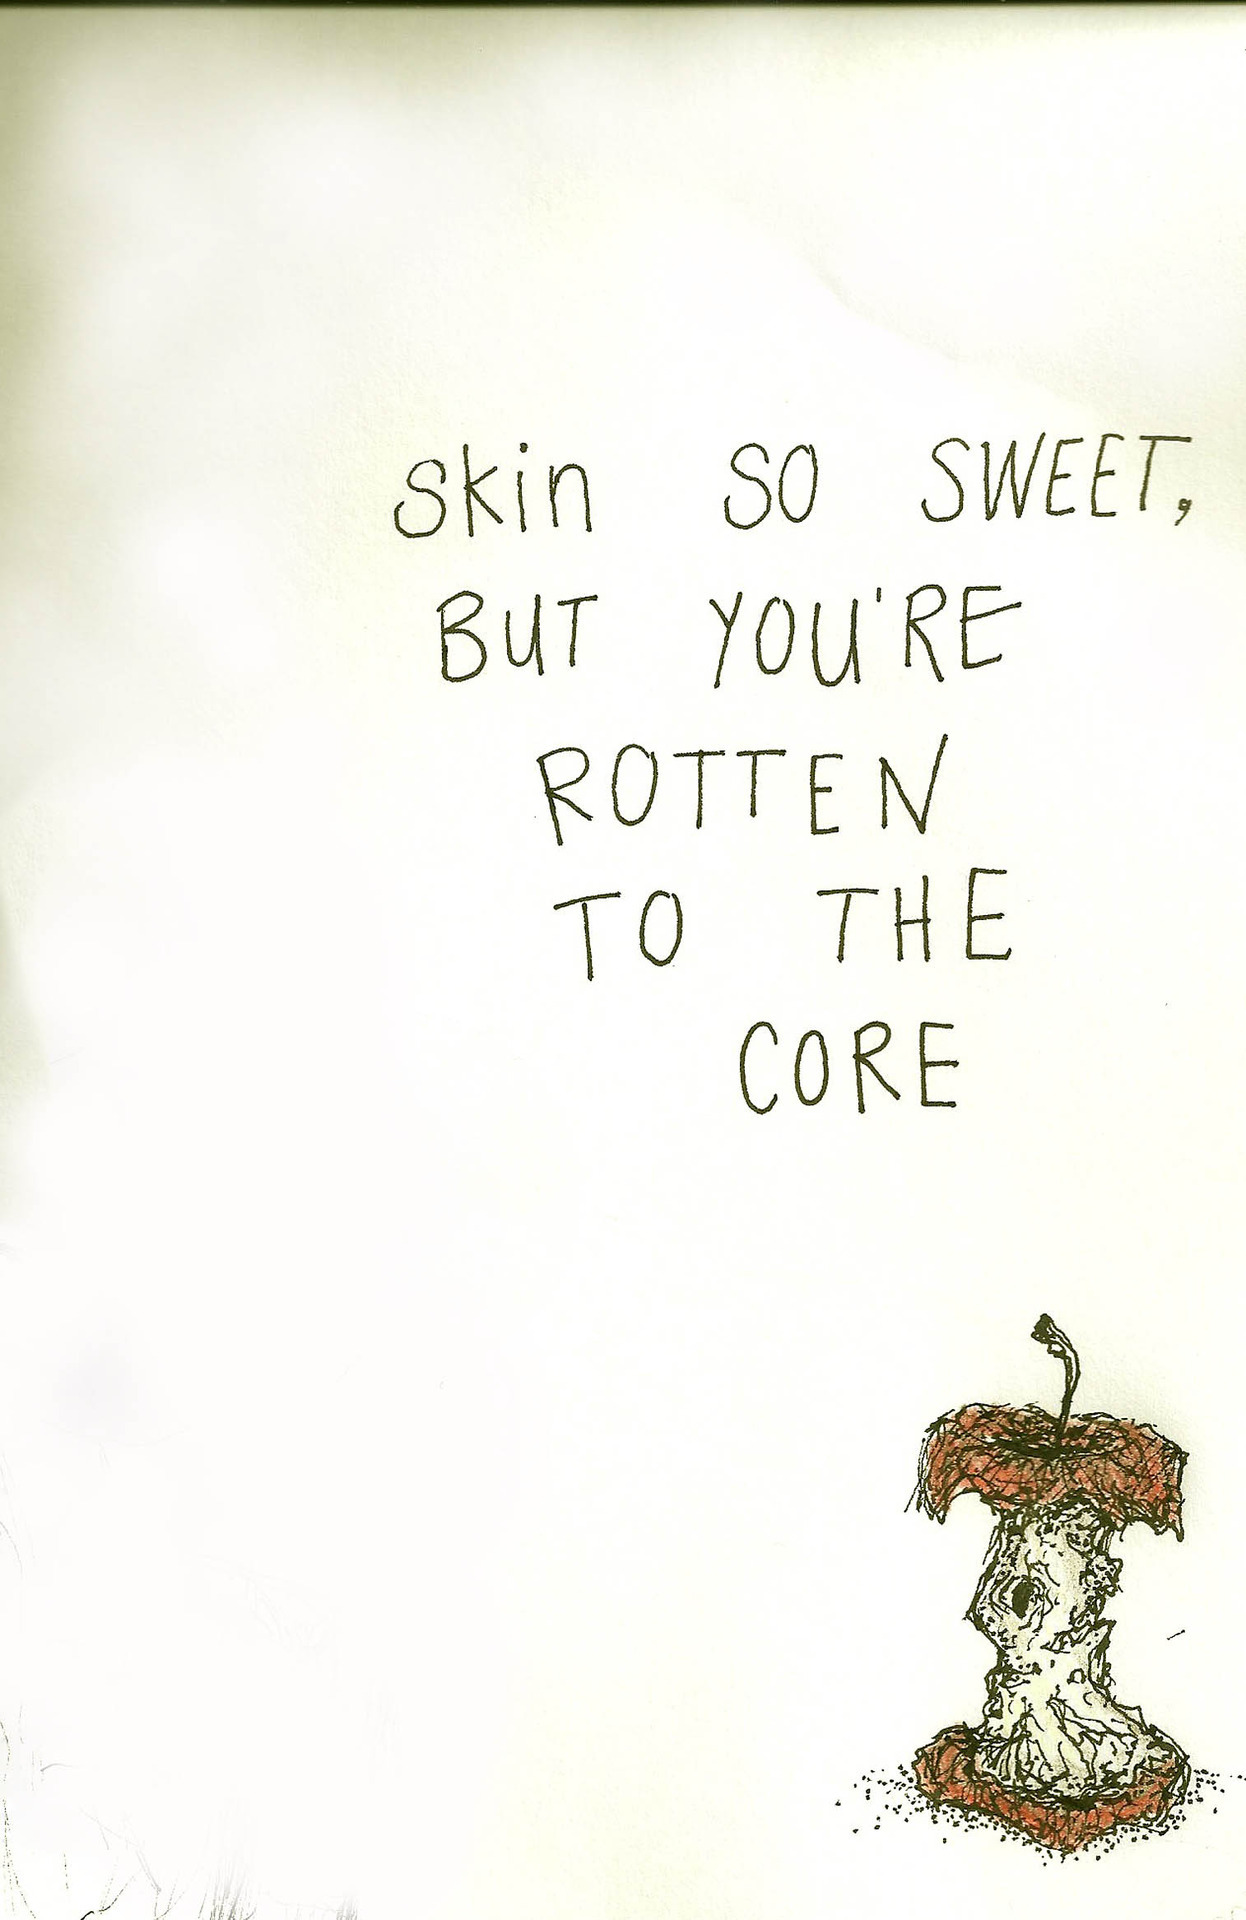 Skin SO SWEET,
BUT YOU'RE
ROTTEN
TO THE
CORE